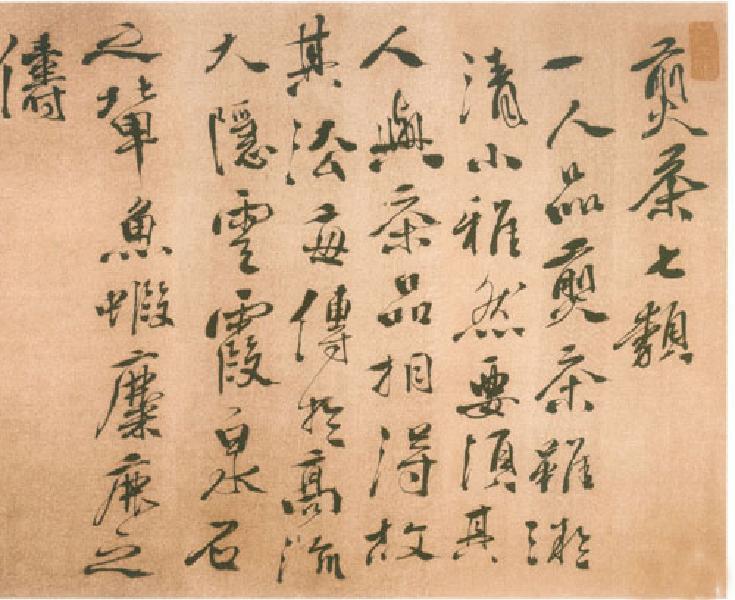 煎茶七類
一人品煎茶雖凝
清小雅然要須其
人與茶品相得故
其法每傳於高流
大隱雲霞泉石
之輩魚蝦麋鹿之
儔